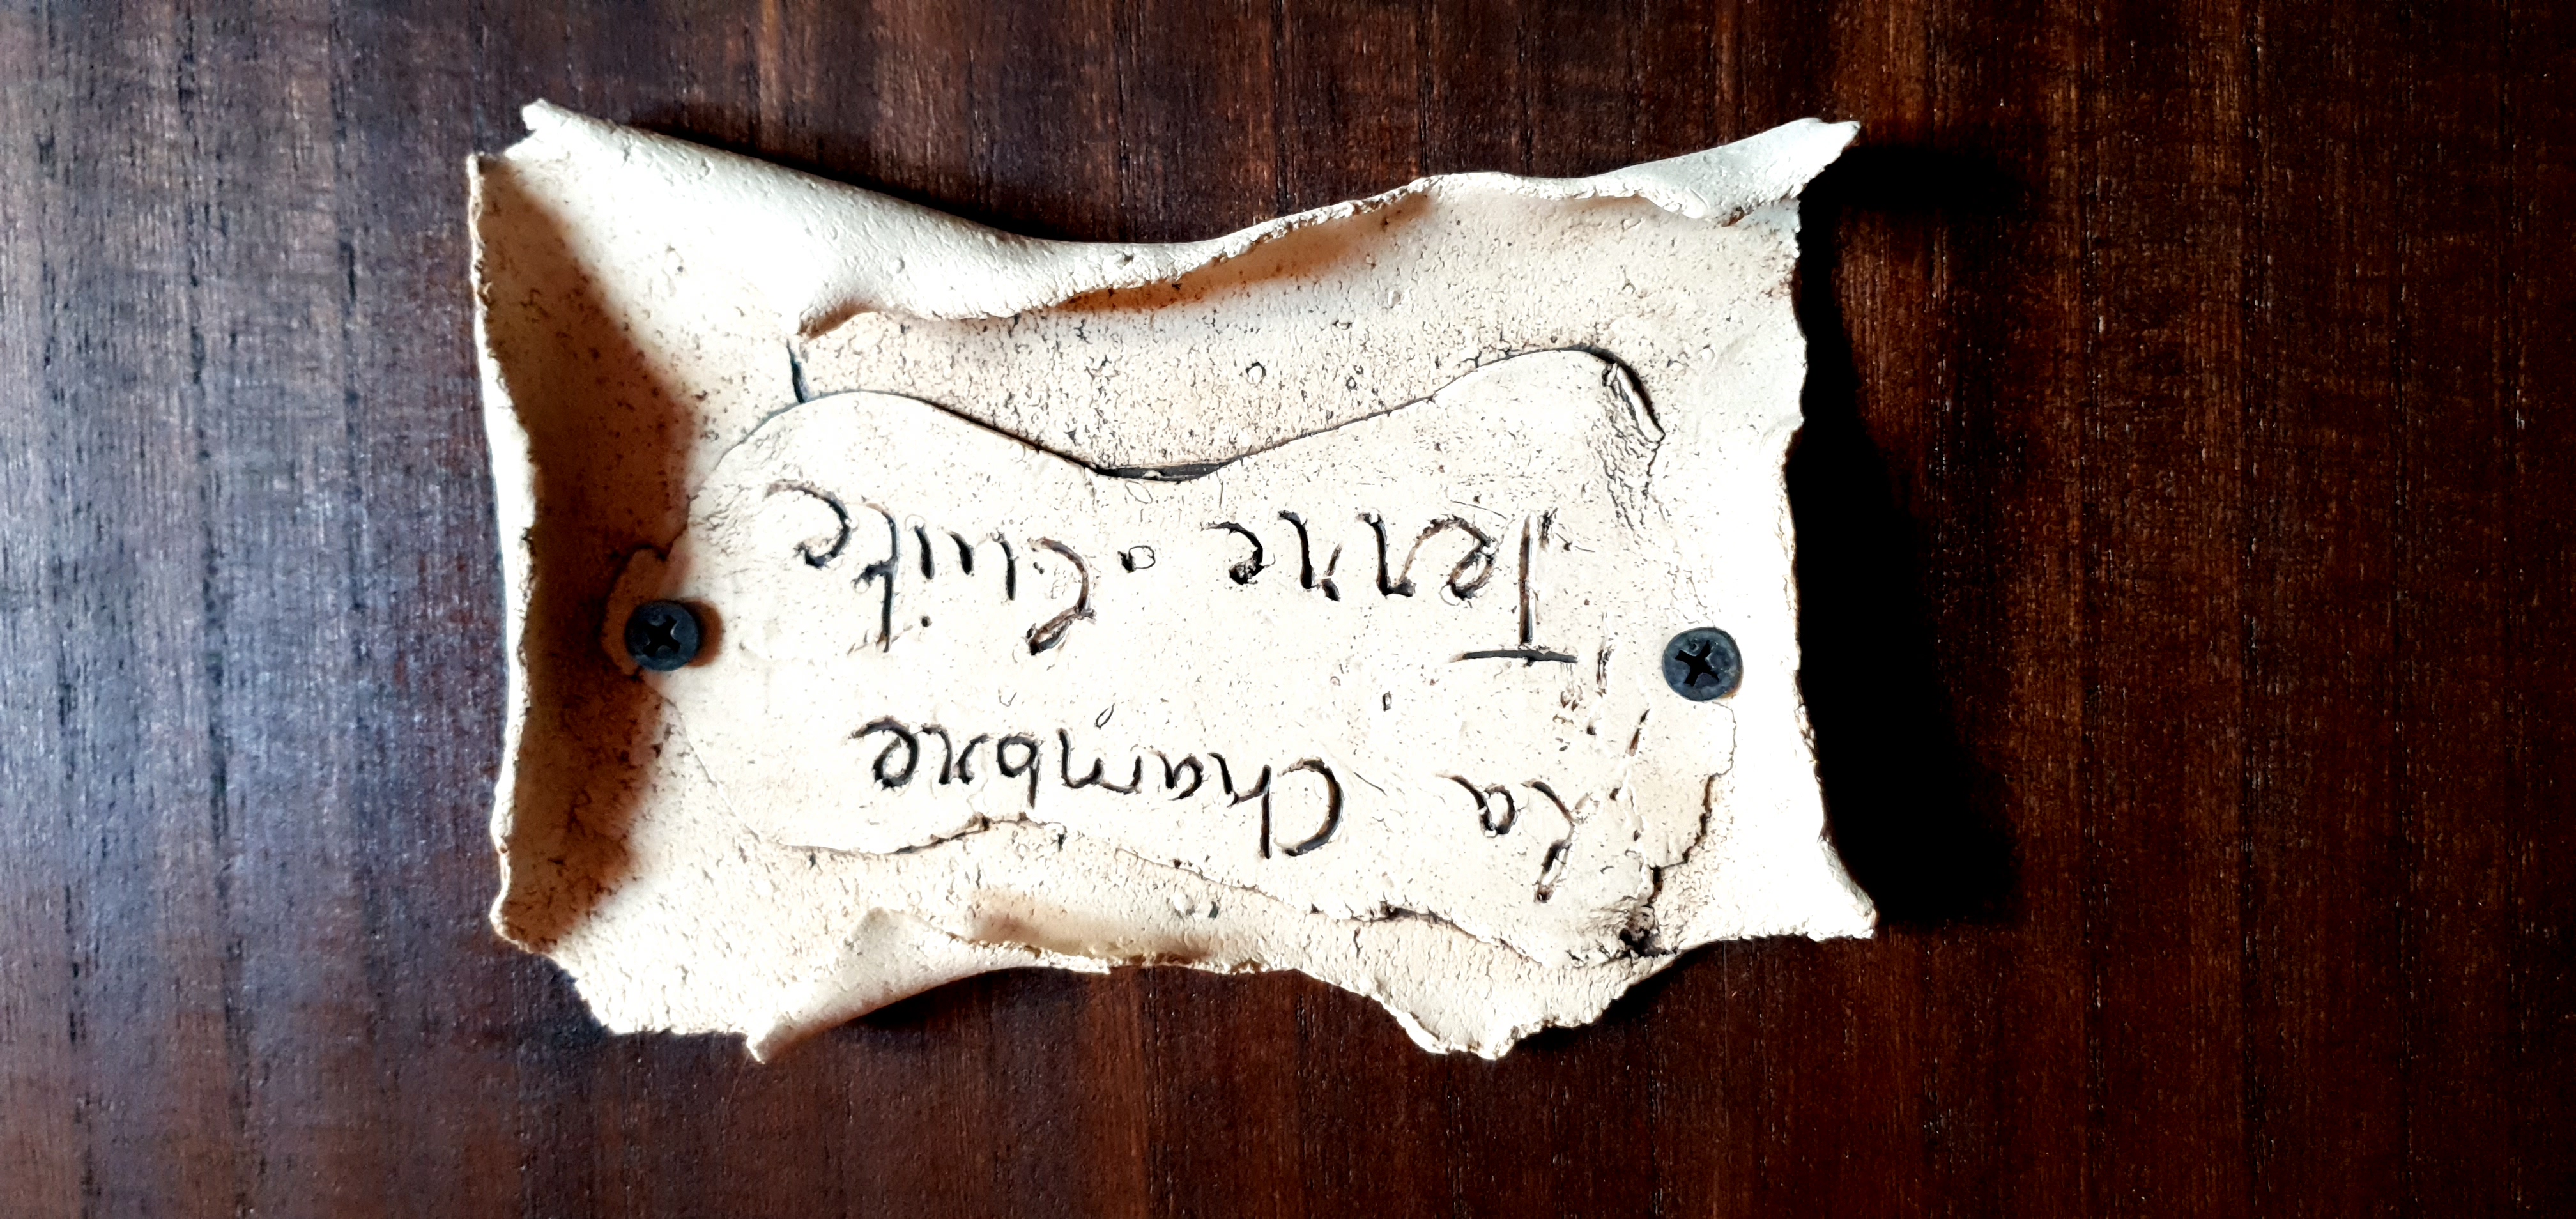 La Chambre
Terre. Cuite